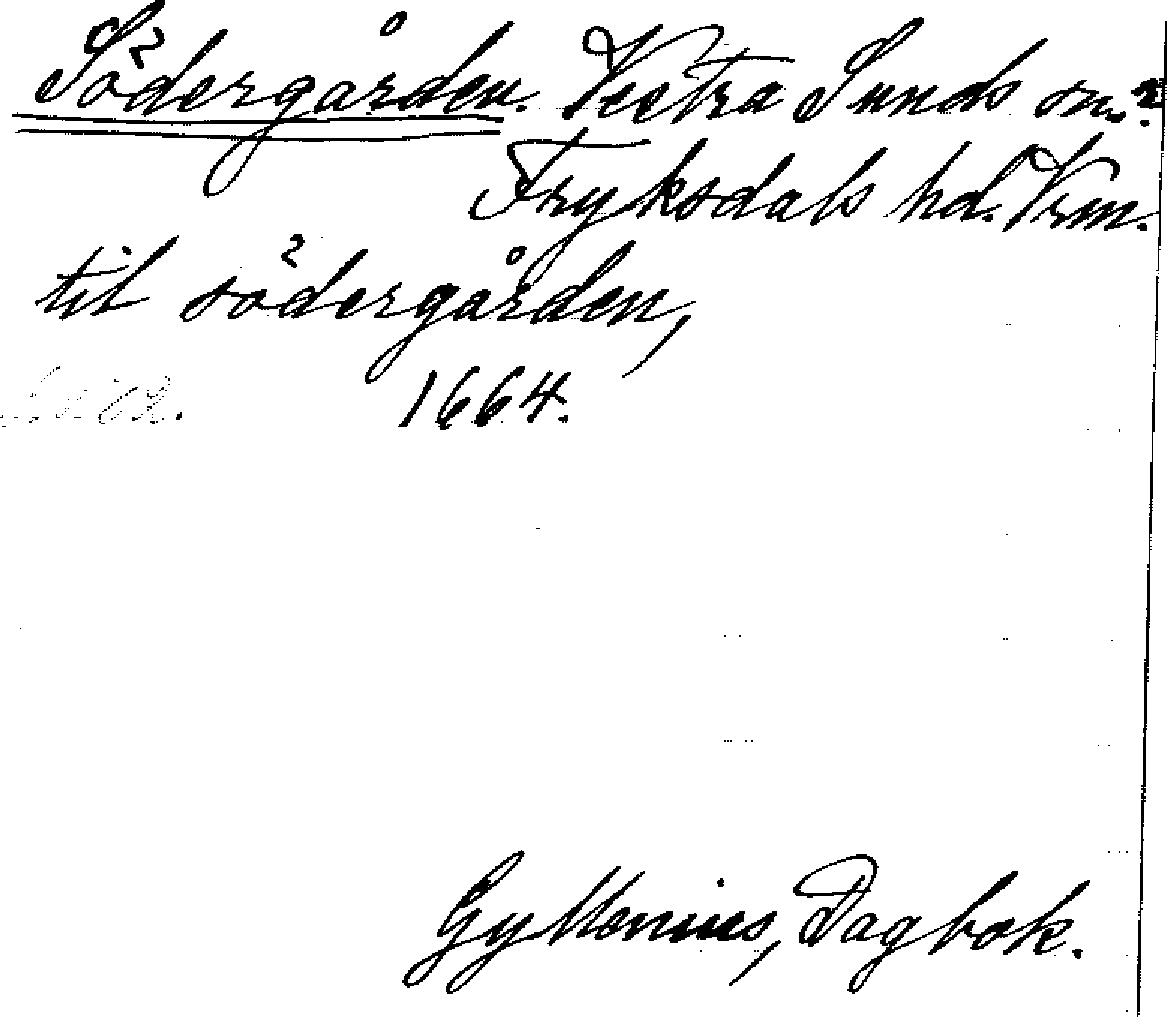 Södergården. Vestra Sunds sn.?
Fryksdals hd. Vrm.
til södergården,
1664.
Gyllenius, Dagbok.